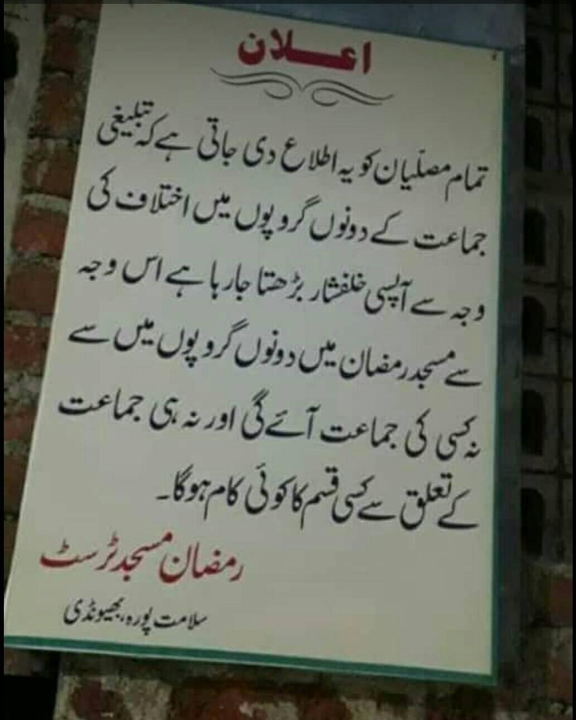 اعلان
تمام مصلّیان کو یہ اطلاع دی جاتی ہے کہ تبلیغی
جماعت کے دونوں گروپوں میں اختلاف کی
وجہ سے آپسی خلفشار بڑھتا جارہا ہے اس وجہ
سے مسجد رمضان میں دونوں گروپوں میں سے
نہ کسی کی جماعت آئے گی اور نہ ہی جماعت
کے تعلق سے کسی قسم کا کوئی کام ہوگا۔
رمضان مسجد ٹرسٹ
سلامت پورہ، بھیونڈی